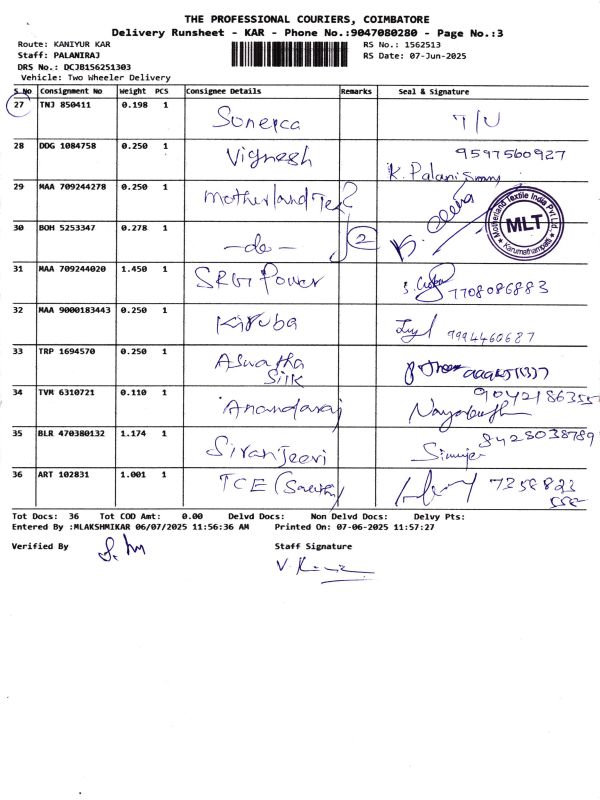 THE PROFESSIONAL COURIERS, COIMBATORE
Delivery Runsheet - KAR - Phone No.:9047080280 - Page No.:3
Route: KANIYUR KAR RS No.: 1562513
Staff: PALANIRAJ RS Date: 07-Jun-2025
DRS No.: DCJB156251303
Vehicle: Two Wheeler Delivery
S No Consignment No Weight PCS Consignee Details Remarks Seal & Signature
27 TNJ 850411 0.198 1 T/U
28 DDG 1084758 0.250 1 Vignesh 9597560927
K. Palani
29 MAA 709244278 0.250 1 Motherland Tex
Motherland Textile India Pvt Ltd
MLT
Karumathampatti
30 BOH 5253347 0.278 1 -do- 2
31 MAA 709244020 1.450 1 SRG Power 7708086883
32 MAA 9000183443 0.250 1 Kiruba 9994460687
33 TRP 1694570 0.250 1 Aswatha
Silk
34 TVM 6310721 0.110 1 Anandaraj
35 BLR 470380132 1.174 1 Siranjeevi 8428038789
36 ART 102831 1.001 1 TCE 7258823
Tot Docs: 36 Tot COD Amt: 0.00 Delvd Docs: Non Delvd Docs: Delvy Pts:
Entered By :MLAKSHMIKAR 06/07/2025 11:56:36 AM Printed On: 07-06-2025 11:57:27
Verified By Staff Signature